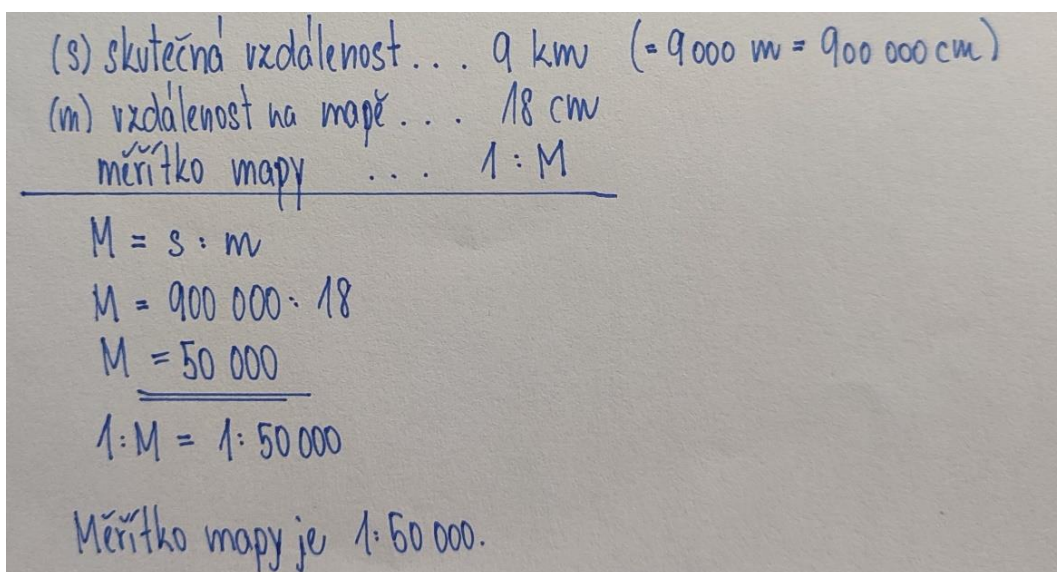 (s) skutečná vzdálenost... 9 km (= 9 000 m = 900 000 cm)
(m) vzdálenost na mapě... 18 cm
měřítko mapy ... 1 : M
M = s : m
M = 900 000 : 18
M = 50 000
1 : M = 1 : 50 000
Měřítko mapy je 1 : 50 000.